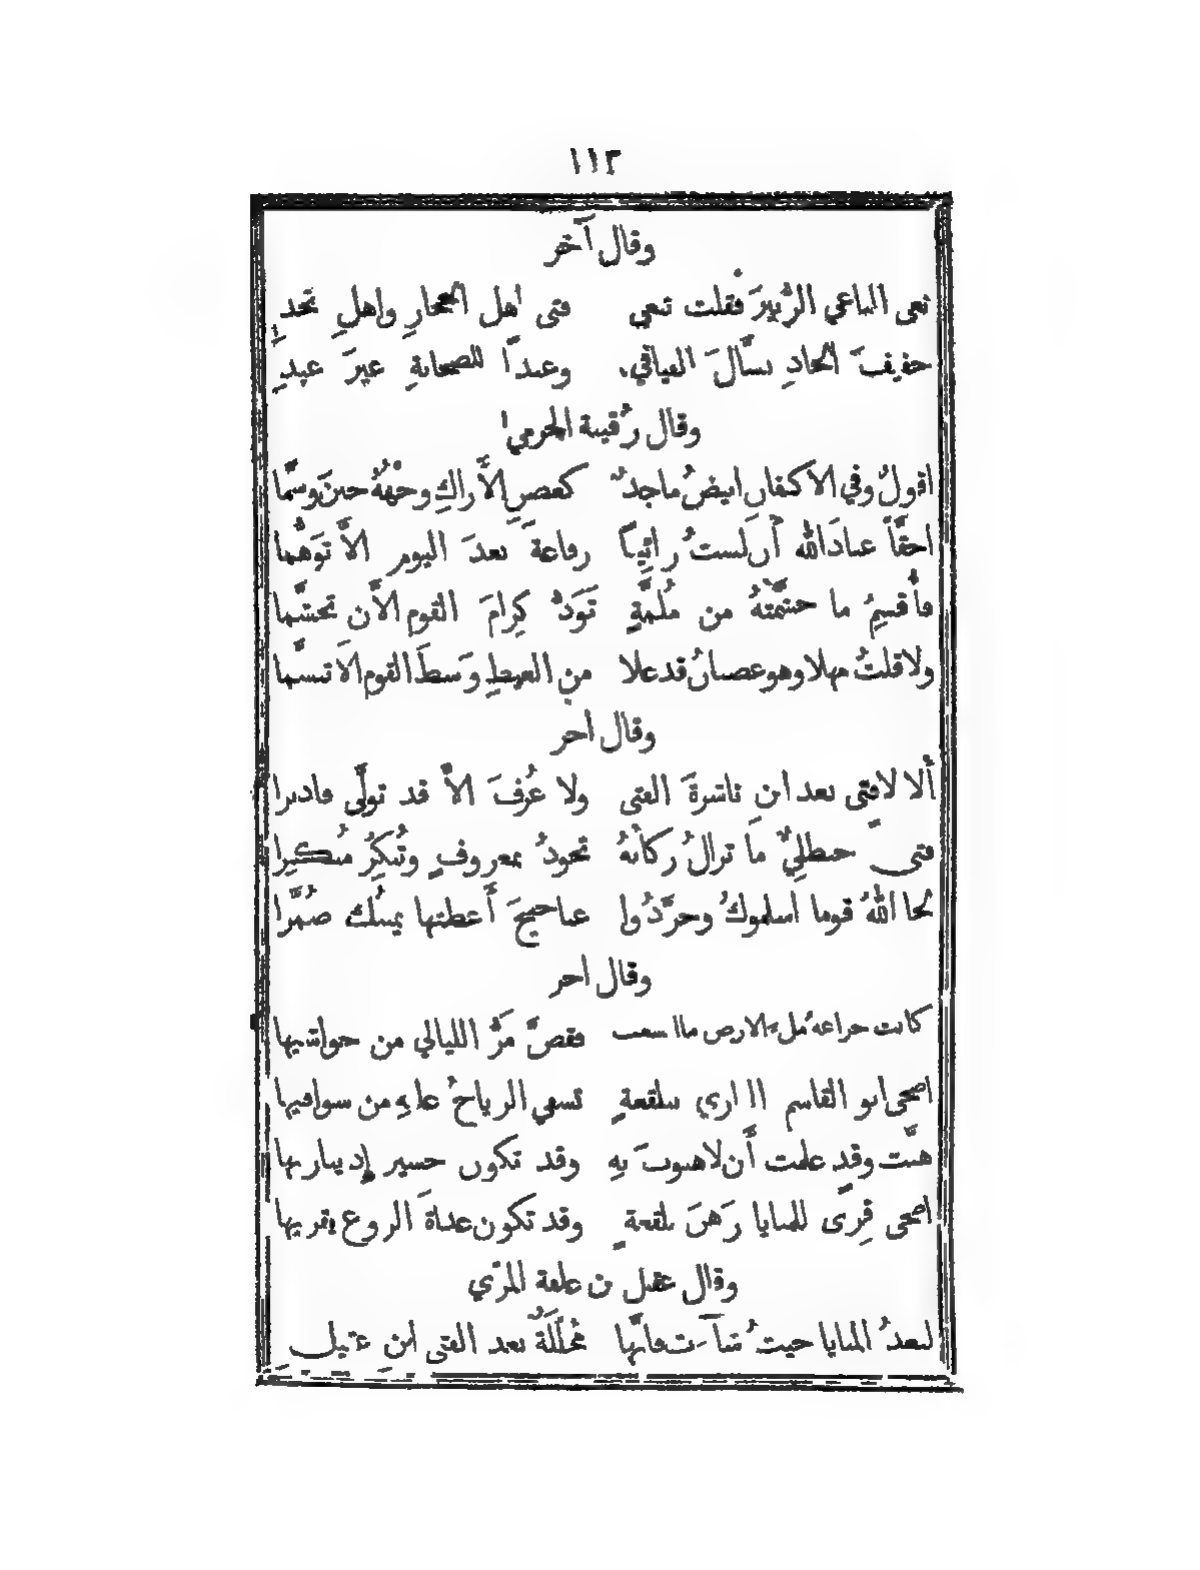 ١١٢
وقال آخر
نعى الناعي الزُّبيرَ فقلت تنعي فتى اهل الحجازِ واهلِ نجدِ
خفيفَ الحاذِ نسَّالَ الفيافي وعبدًا للصحابةِ غيرَ عبدِ
وقال رُقيبة الجرمي
اقولُ وفي الاكفانِ ابيضُ ماجدٌ كغصنِ الأراكِ وجْهُهُ حينَ وسَّما
احقًّا عبادَ الله أن لستُ رائيًا رفاعةَ بعدَ اليوم الاَّ توَهُّما
فأُقسِمُ ما جشَّمتهُ من مُلمَّةٍ تَوَدُّ كِرامَ القوم الاَّ تجشَّما
ولا قلتُ مهلا وهو غضبانُ قد غلا من الغيظِ وَسطَ القوم الاَ تبسَّما
وقال آخر
ألا لا فتى بعد ابنِ ناشرةَ الفتى ولا عُرفَ الاَّ قد تولَّى فادبرا
فتى حنظليٌّ ما تزالُ ركابُهُ تجودُ بمعروفٍ وتُنكِرُ منكَرا
لحا اللهُ قوما اسلموكَ وجرَّدُوا عناجيجَ أعطتها يمينُك ضُمَّرا
وقال آخر
كانت خزاعة ملءَ الارض ما اتسعت فقصَّ مَرُّ الليالي من حواشيها
اضحى ابو القاسم الثاوي ببلقعةٍ تسفي الرياحُ عليهِ من سوافيها
هبَّت وقد علمت أن لا هبوبَ بهِ وقد تكون حسيرًا إذ يباريها
اضحى قِرًى للمنايا رَهنَ بلقعةٍ وقد تكون غداةَ الروع يقريها
وقال عقيل بن علفة المرّي
لتعدُ المنايا حيثُ شاءَت فانَّها مُحلَّلَةٌ بعد الفتى ابنِ عقيلِ